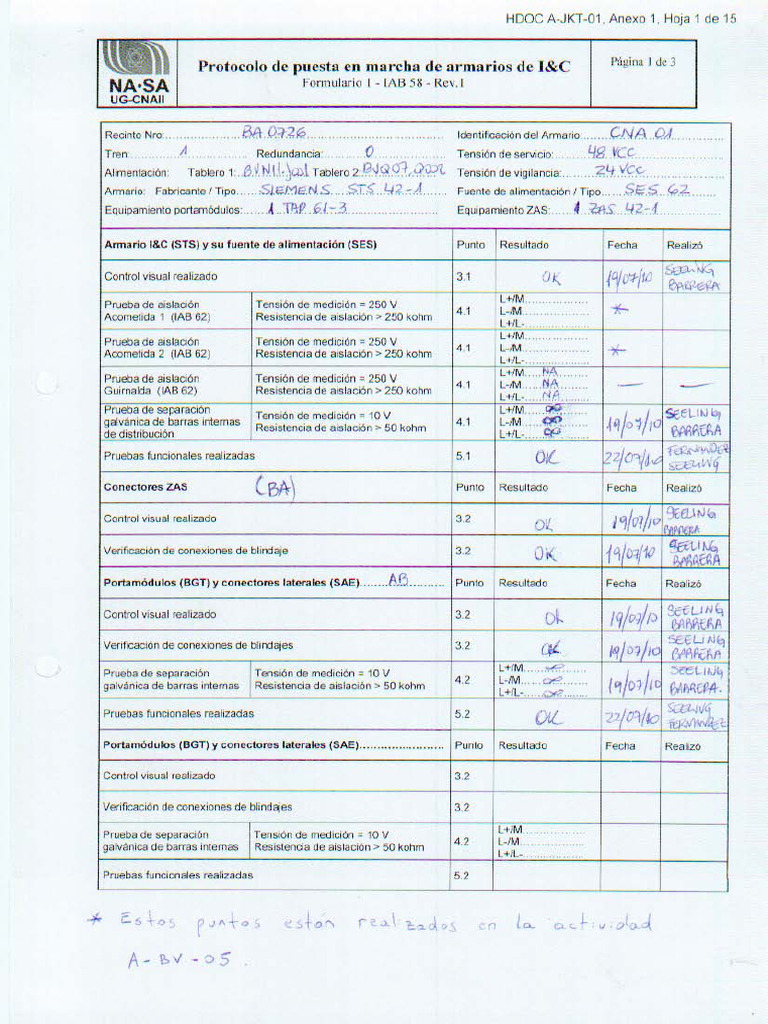 HDOC A-JKT-01, Anexo 1, Hoja 1 de 15
NA·SA
UG-CNAII
Protocolo de puesta en marcha de armarios de I&C
Formulario 1 - IAB 58 - Rev.1
Página 1 de 3
Recinto Nro: BA 0726 Identificación del Armario: CNA 01
Tren: 1 Redundancia: 0 Tensión de servicio: 48 VCC
Alimentación: Tablero 1: Tablero 2: Tensión de vigilancia: 24 VCC
Armario: Fabricante / Tipo: SIEMENS STS 42-1 Fuente de alimentación / Tipo: SES 62
Equipamiento portamódulos: 1 TAP 61-3 Equipamiento ZAS: 1 ZAS 42-1
Armario I&C (STS) y su fuente de alimentación (SES) Punto Resultado Fecha Realizó
Control visual realizado 3.1 OK 19/07/10 SEELING BARRERA
Prueba de aislación Acometida 1 (IAB 62) Tensión de medición = 250 V Resistencia de aislación > 250 kohm 4.1 L+/M L-/M L+/L- *
Prueba de aislación Acometida 2 (IAB 62) Tensión de medición = 250 V Resistencia de aislación > 250 kohm 4.1 L+/M L-/M L+/L- *
Prueba de aislación Guirnalda (IAB 62) Tensión de medición = 250 V Resistencia de aislación > 250 kohm 4.1 L+/M NA L-/M NA L+/L- NA — —
Prueba de separación galvánica de barras internas de distribución Tensión de medición = 10 V Resistencia de aislación > 50 kohm 4.1 L+/M ∞ L-/M ∞ L+/L- ∞ 19/07/10 SEELING BARRERA
Pruebas funcionales realizadas 5.1 OK 22/07/10 FERNANDEZ SEELING
Conectores ZAS (BA) Punto Resultado Fecha Realizó
Control visual realizado 3.2 OK 19/07/10 SEELING BARRERA
Verificación de conexiones de blindaje 3.2 OK 19/07/10 SEELING BARRERA
Portamódulos (BGT) y conectores laterales (SAE) AB Punto Resultado Fecha Realizó
Control visual realizado 3.2 OK 19/07/10 SEELING BARRERA
Verificación de conexiones de blindajes 3.2 OK 19/07/10 SEELING BARRERA
Prueba de separación galvánica de barras internas Tensión de medición = 10 V Resistencia de aislación > 50 kohm 4.2 L+/M ∞ L-/M ∞ L+/L- ∞ 19/07/10 SEELING BARRERA.
Pruebas funcionales realizadas 5.2 OK 22/07/10 SEELING FERNANDEZ
Portamódulos (BGT) y conectores laterales (SAE) Punto Resultado Fecha Realizó
Control visual realizado 3.2
Verificación de conexiones de blindajes 3.2
Prueba de separación galvánica de barras internas Tensión de medición = 10 V Resistencia de aislación > 50 kohm 4.2 L+/M L-/M L+/L-
Pruebas funcionales realizadas 5.2
* Estos puntos están realizados en la actividad
A-BV-05.